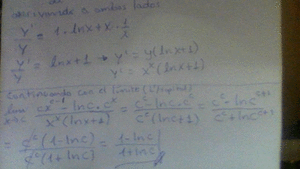 derivando a ambos lados
y'/y = 1·lnx + x·1/x
y'/y = lnx+1 → y' = y(lnx+1)
y' = x^x(lnx+1)
Continuando con el límite (L'Hôpital)
lim x→c (cx^(c-1) - lnc·c^x)/(x^x(lnx+1)) = (c^c - lnc·c^c)/(c^c(lnc+1)) =
= c^c(1-lnc)/c^c(1+lnc) = (1-lnc)/(1+lnc)